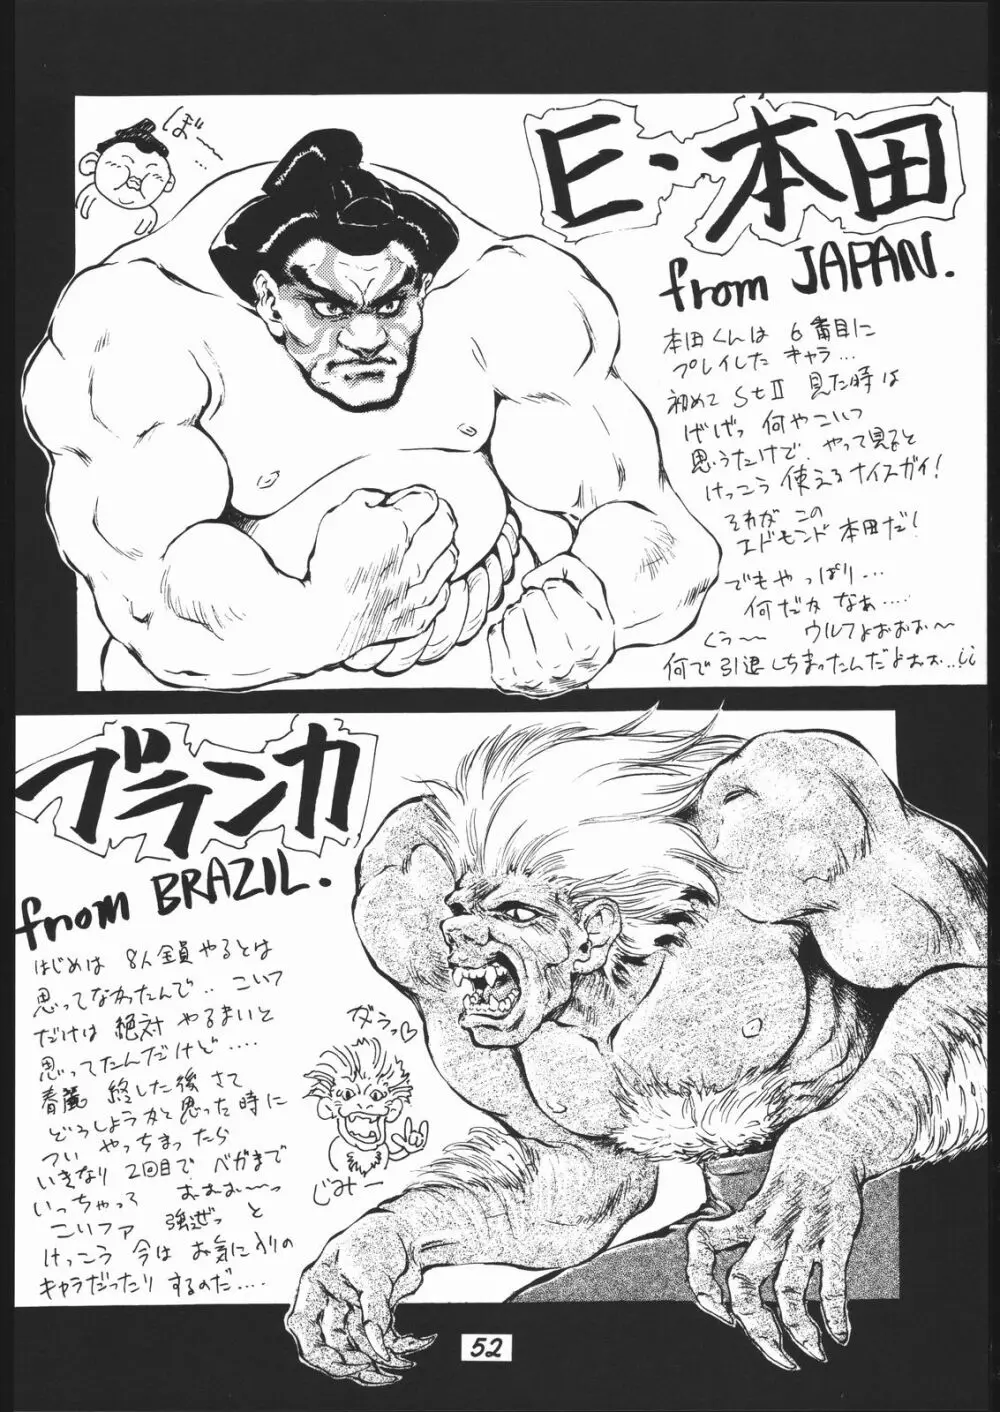 ぼー
E・本田
from JAPAN.
本田くんは 6番目に
プレイした キャラ…
初めて StII 見た時は
げげっ 何やこいつ
思うたけで、やって見ると
けっこう 使えるナイスガイ!
それが この
エドモンド 本田だ!
でもやっぱり…
何だかなあ‥‥
くぅ〜〜 ウルフよぉぉぉぉ〜
何で引退しちまったんだよぉぉ…
ブランカ
from BRAZIL.
はじめは 8人全員やるとは
思ってなかったんで‥ こいつ
だけは 絶対 やるまいと
思ってたんだけど‥‥
春麗 終した後 さて
どうしようかと思った時に
つい やっちまったら
いきなり 2回目で ベガまで
いっちゃって おおお〜〜っ
こいつァ 強ぇっ と
けっこう 今は お気に入りの
キャラだったり するのだ‥‥
ダラっ♡
じみー
52